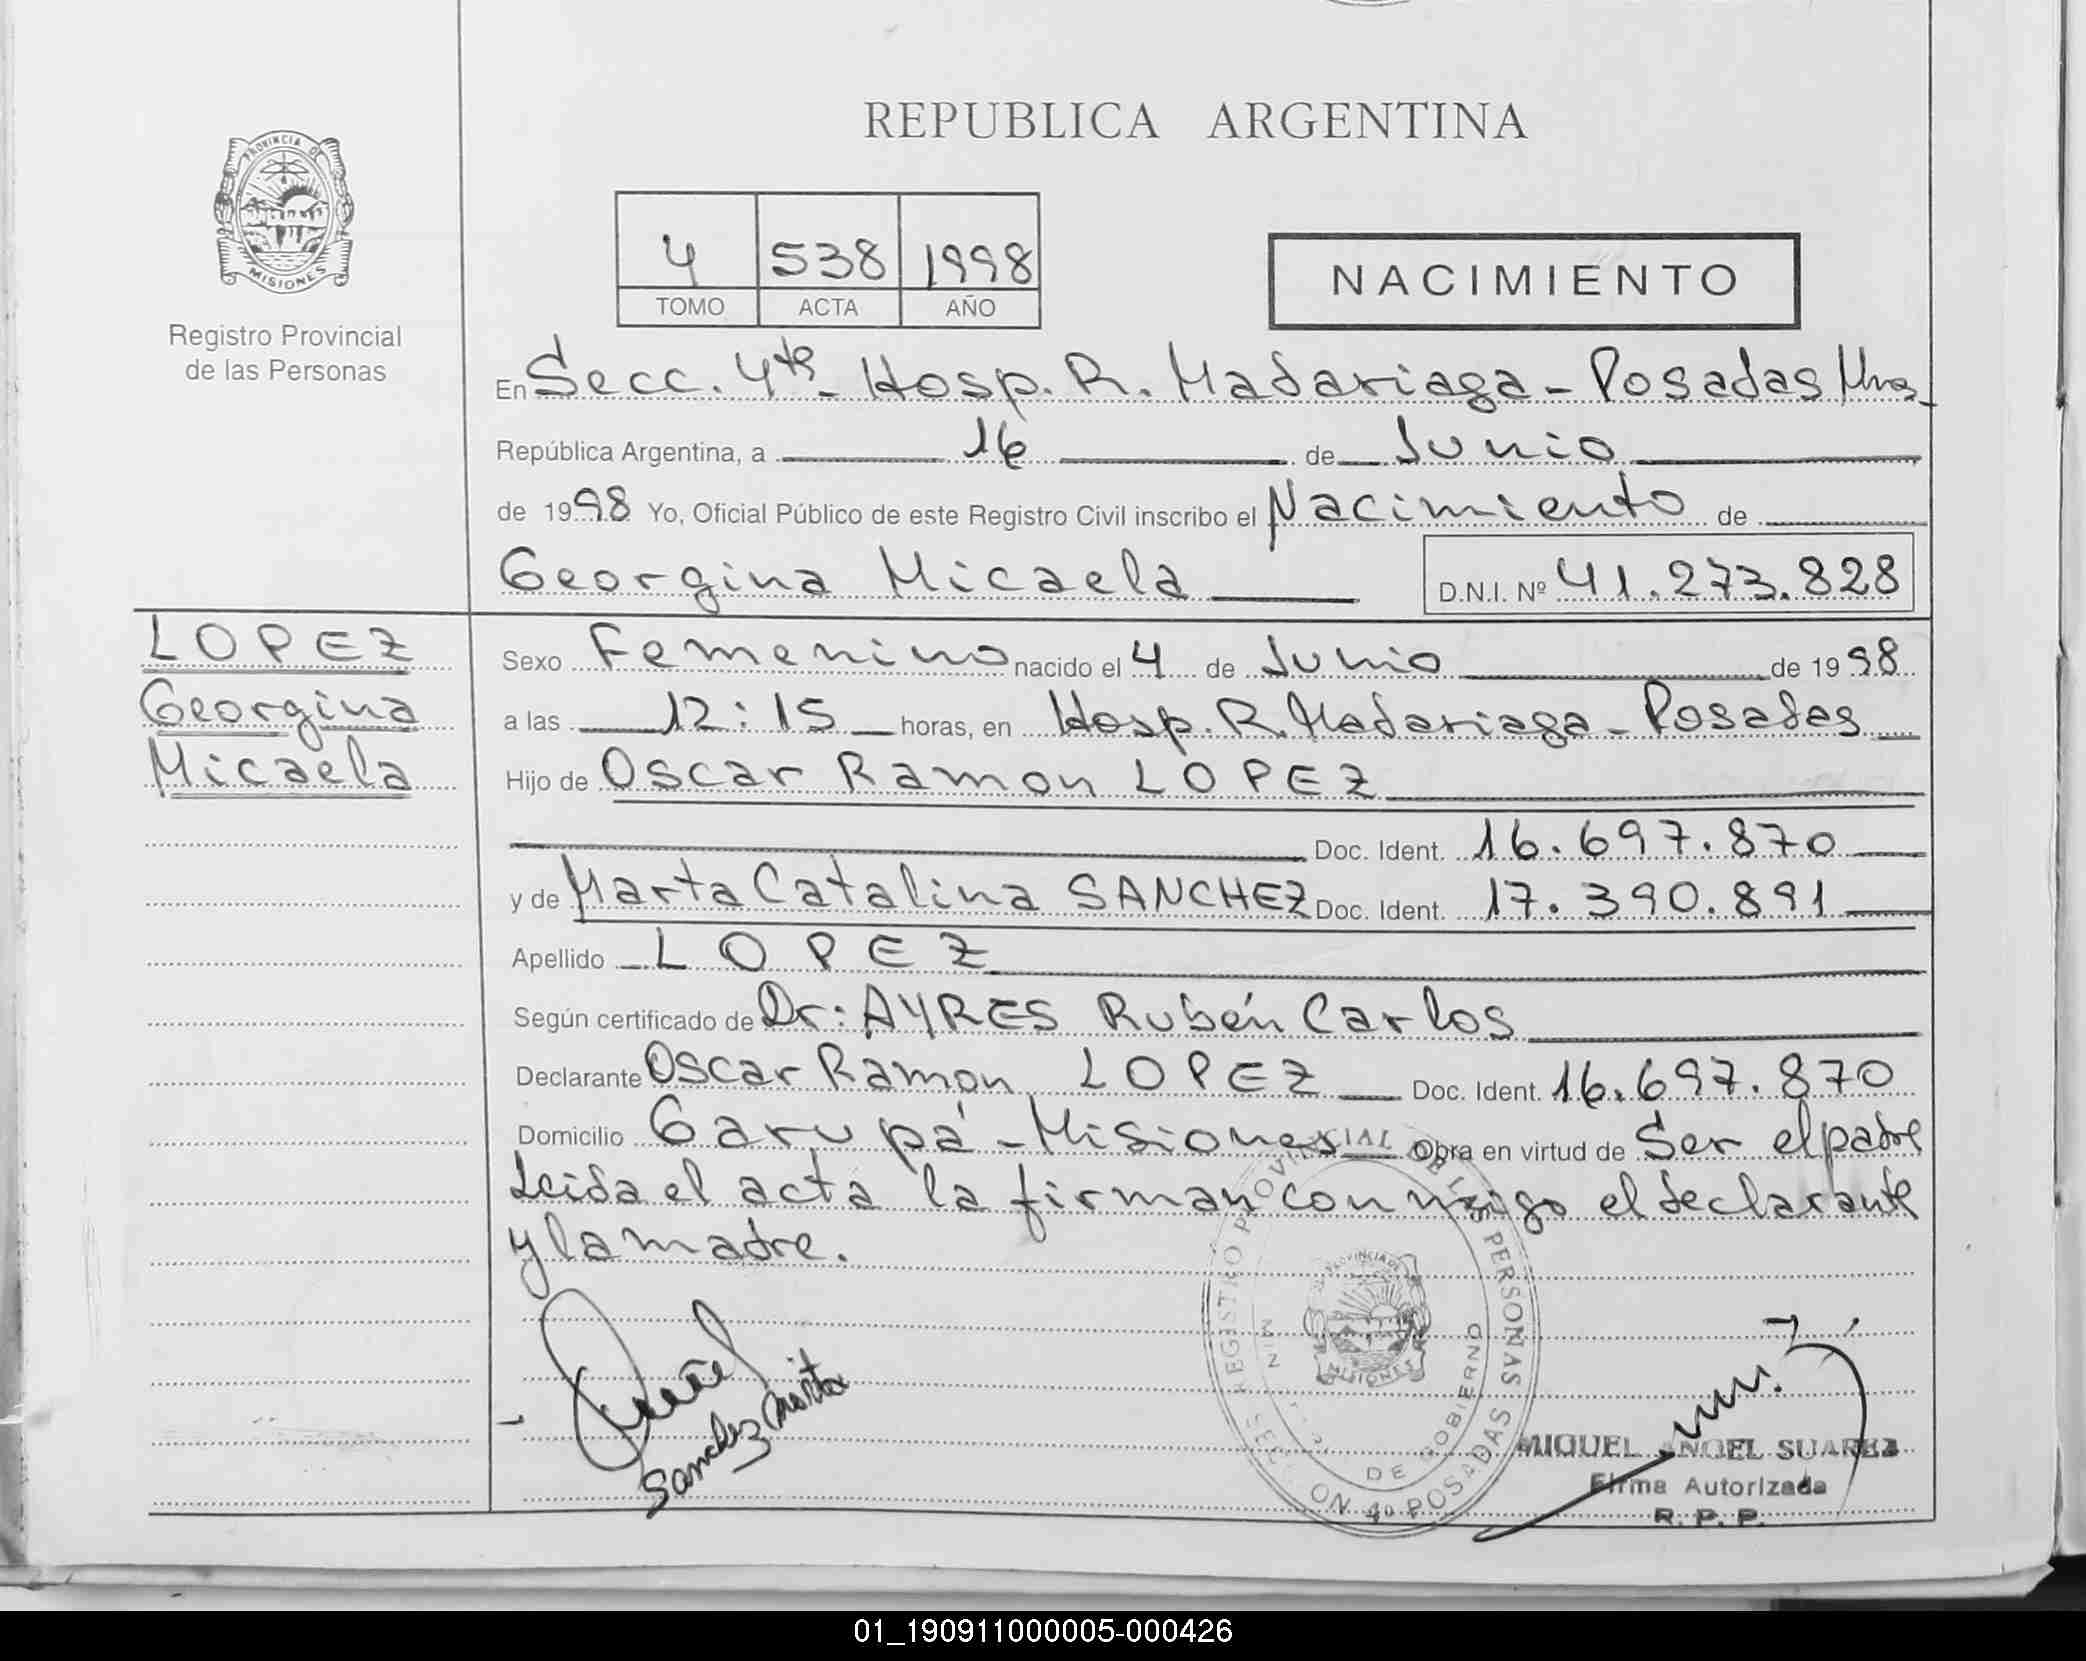 REPUBLICA ARGENTINA
PROVINCIA DE
MISIONES
Registro Provincial
de las Personas
4 538 1998
TOMO ACTA AÑO
NACIMIENTO
En Secc. 4ta - Hosp. R. Madariaga - Posadas Mnes
República Argentina, a 16 de Junio
de 1998 Yo, Oficial Público de este Registro Civil inscribo el Nacimiento de
Georgina Micaela D.N.I. Nº 41.273.828
LOPEZ
Georgina
Micaela
Sexo Femenino nacido el 4 de Junio de 1998
a las 12:15 horas, en Hosp. R. Madariaga - Posadas
Hijo de Oscar Ramon LOPEZ
Doc. Ident. 16.697.870
y de Marta Catalina SANCHEZ Doc. Ident. 17.390.891
Apellido LOPEZ
Según certificado de Dr: AYRES Rubén Carlos
Declarante Oscar Ramon LOPEZ Doc. Ident. 16.697.870
Domicilio Garupá - Misiones Obra en virtud de Ser el padre
Leida el acta la firman conmigo el declarante
y la madre.
Sanchez Marta
REGISTRO PROVINCIAL DE LAS PERSONAS
DE GOBIERNO
MISIONES
SECCION 4º POSADAS
MIGUEL ANGEL SUAREZ
Firma Autorizada
R. P. P.
01_190911000005-000426